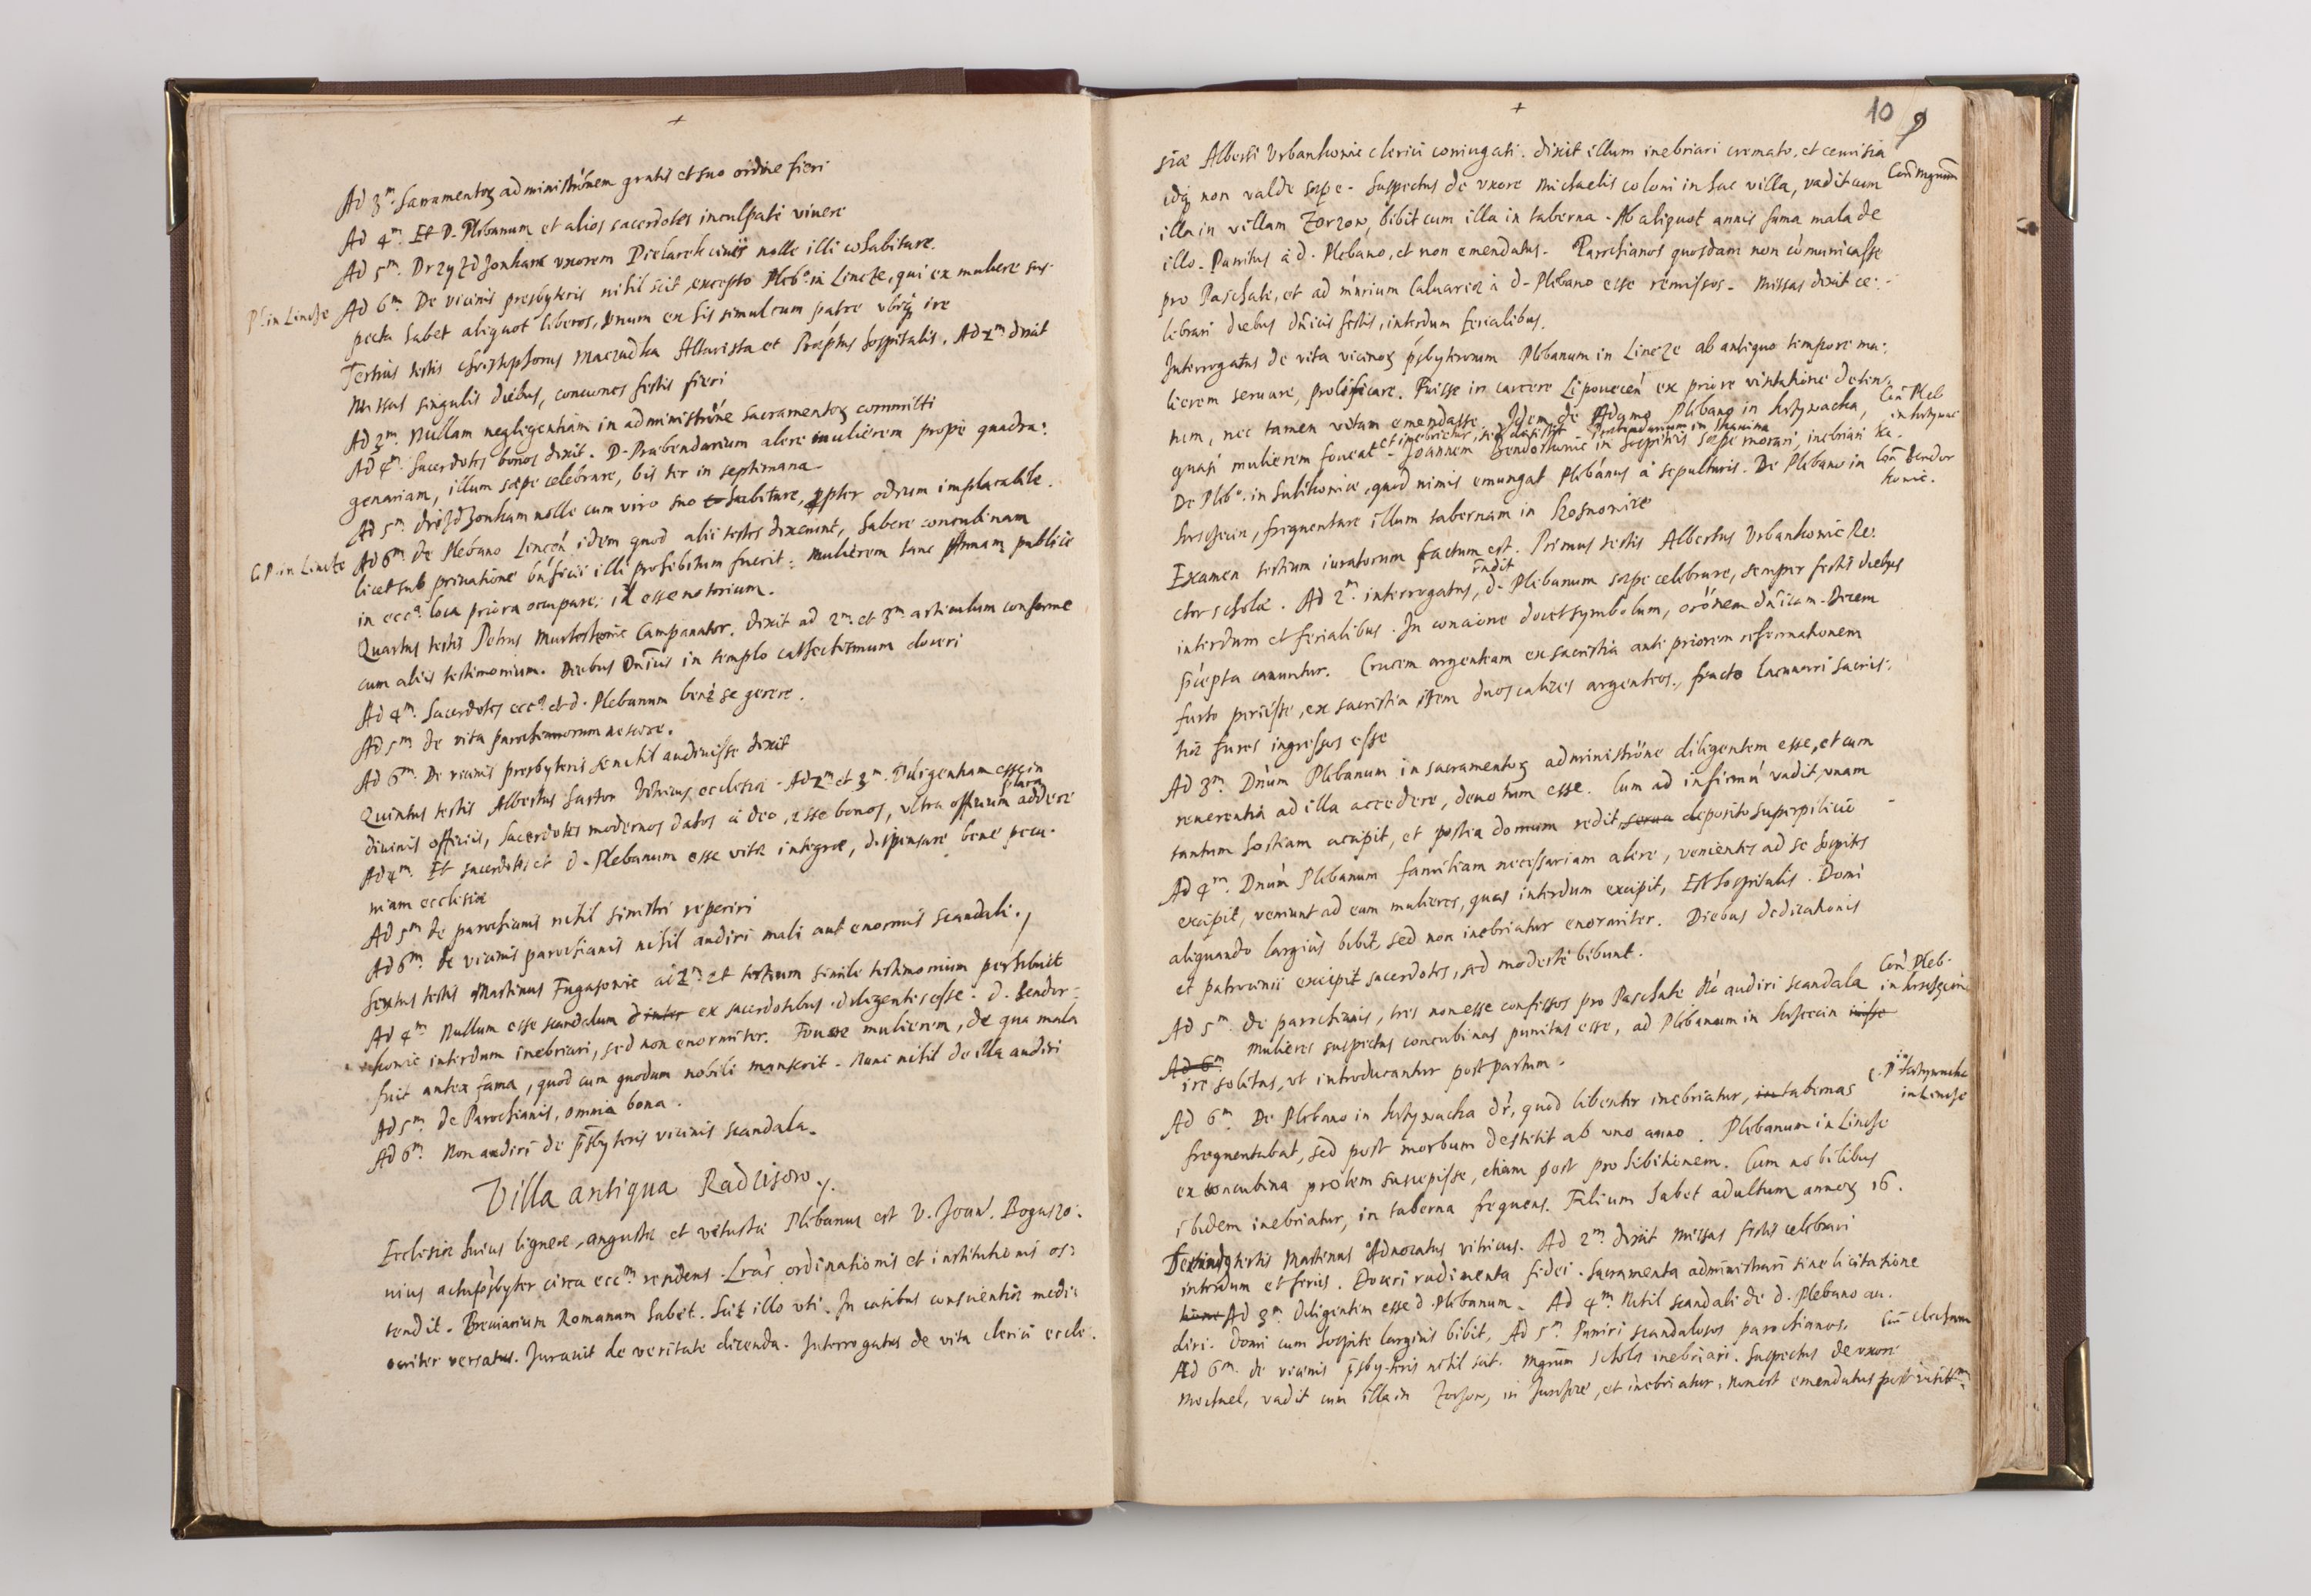 +
Ad 3m. Sacramentoꝝ administrōnem gratis et suo ordine fieri
Ad 4m. Et D. Plebanum et alios sacerdotes inculpate vivere
Ad 5m. uxorem nolle illi cohabitare.
Pl. in Lincze
Ad 6m. De vicinis presbyteris nihil scit, excepto Pleb.o in Lincze, qui ex muliere sus-
pecta habet aliquot liberos, unum ex his simul cum patre ubiqꝫ ire
Tertius testis Christophorus Maczudka Altarista et Præptus hospitalis. Ad 2m. dixit
Missas singulis diebus, conciones festis fieri
Ad 3m. Nullam negligentiam in administrōne sacramentoꝝ committi
Ad 4m. Sacerdotes bonos dixit. D. Præbendarium alere mulierem prope quadra:
genariam, illum sæpe celebrare, bis ter in septimana.
Ad 5m. nolle cum viro suo habitare, ꝓpter odium implacabile.
C. P. in Lincze
Ad 6m. de Plebano Lincēn idem quod alii testes dixerunt, habere concubinam
licet sub privatione bnficii illi prohibitum fuerit: Mulierem hanc primam publice
in ecca. loca priora occupare: id esse notorium.
Quartus testis Petrus Campanator. dixit ad 2m. et 3m. articulum conforme
cum aliis testimonium. Diebus Dnicis in templo cathechismum doceri
Ad 4m. Sacerdotes ecca. et d. Plebanum bene se gerere.
Ad 5m. de vita parochianorum nescire.
Ad 6m. De vicinis presbyteris se nihil audivisse dixit
Quintus testis Albertus Sartor Vitricus ecclesiæ. Ad 2m. et 3m. Diligentiam esse in
divinis officiis, Sacerdotes modernos datos a deo, esse bonos, ultra officium plura addere
Ad 4m. Et sacerdotes et d. Plebanum esse vitæ integræ, dispensare bene pecu-
niam ecclesiæ
Ad 5m. de parochianis nihil sinistri reperiri
Ad 6m. de vicinis parochianis nihil audiri mali aut enormis scandali.
Sextus testis Martinus Fugasowic ad 2m. et tertium simile testimonium perhibuit
Ad 4m. Nullum esse scandalum d inter ex sacerdotibus. diligentes esse. d. Bendor-
kowic interdum inebriari, sed non enormiter. Fovere mulierem, de qua mala
fuit antea fama, quod cum quodam nobili manserit. Nunc nihil de illa audiri
Ad 5m. de Parochianis, omnia bona.
Ad 6m. Non audiri de psbyteris vicinis scandala.
Villa antiqua Radzisow.
Ecclesiæ huius ligneæ, angustæ et vetustæ Plebanus est V. Joan. Boguszo-
vius actu psbyter circa eccm. residens. Lras ordinationis et institutionis os:
tendit. Breviarium Romanum habet. Scit illo uti. In casibus conscientiæ medi:
ocriter versatus. Juravit de veritate dicenda. Interrogatus de vita clerici eccle-
+
10 9
siæ Alberti Urbankowic clerici coniugati. dixit illum inebriari cremato, et cervisia
idqꝫ non valde sæpe. Suspectus de uxore Michaelis coloni in hac villa, vadit cum
Con Mgrum
illa in villam Zorzow, bibit cum illa in taberna. Ab aliquot annis fama mala de
illo. Punitus a d. Plebano, et non emendatus. Parochianos quosdam non comunicasse
pro Paschate, et ad Calvariæ a d. Plebano esse remissos. Missas dixit ce:
lebrari diebus dnicis festis, interdum ferialibus.
Interrogatus de vita vicinoꝝ psbyterorum Plebanum in Lincze ab antiquo tempore mu:
lierem servare, prolificare. Fuisse in carcere Lipovecen ex priore visitatione deten:
tum, nec tamen vitam emendasse. Idem de Adamo Plebano in Krzywacka,
Con Pleb in Krzywac
quasi mulierem foveat et inebrietur, sed desistit. Joannem Bendorkowic Præbendarium in Skawina in hospitiis sæpe morari, inebriari
Con Bendorkowic.
De Plebo. in Sulkowice, quod nimis emungat Plebanus a sepulturis. De Plebano in
frequentare illum tabernam in
Examen testium iuratorum factum est. Primus testis Albertus Urbankowic Re:
ctor scholæ. Ad 2m. interrogatus, rndit d. Plebanum sæpe celebrare, semper festis diebus
interdum et ferialibus. In concione docet symbolum, orōnem dnicam. Decem
pcepta canuntur. Crucem argenteam ex sacristia ante priorem reformationem
furto periisse, ex sacristia item duos calices argenteos, fracto lacunari sacris:
tiæ fures ingressos esse
Ad 3m. Dnum Plebanum in sacramentoꝝ administrōne diligentem esse, et cum
reverentia ad illa accedere, devotum esse. Cum ad infirmu vadit, unam
tantum hostiam accipit, et postea domum redit, deposito superpilicio
Ad 4m. Dnum Plebanum familiam necessariam alere, venientes ad se hospites
excipit, veniunt ad eum mulieres, quas interdum excipit, Est hospitalis. Domi
aliquando largius bibit, sed non inebriatur enormiter. Diebus dedicationis
et patrocinii excipit sacerdotes, sed modeste bibunt.
Ad 5m. de parochianis, tres non esse confessos pro Paschate No audiri scandala
Con Pleb. in
Ad 6m Mulieres suspectas concubinas punitas esse, ad Plebanum in
ire solitas, ut introducantur post partum.
Ad 6m. De Plebano in Krzywacka dr, quod libenter inebriatur, in tabernas
C. P in Krzywacka in Lincze
frequentabat, sed post morbum destitit ab uno anno. Plebanum in Lincze
ex concubina prolem suscepisse, etiam post prohibitionem. Cum nobilibus
ibidem inebriatur, in taberna frequens. Filium habet adultum annoꝝ 16.
testis Martinus Advocatus vitricus. Ad 2m. dixit Missas festis celebrari
interdum et feriis. Doceri rudimenta fidei. Sacramenta administrari sine licitatione
Ad 3m. diligentem esse d. Plebanum. Ad 4m. Nihil scandali de d. Plebano au-
diri. Domi cum hospite largius bibit, Ad 5m. Puniri scandalosos parochianos.
Ad 6m. de vicinis psbyteris nihil scit. Mgrum scholæ inebriari. Suspectus de uxore
vadit cum illa in et inebriatur. Non est emendatus post visitm.